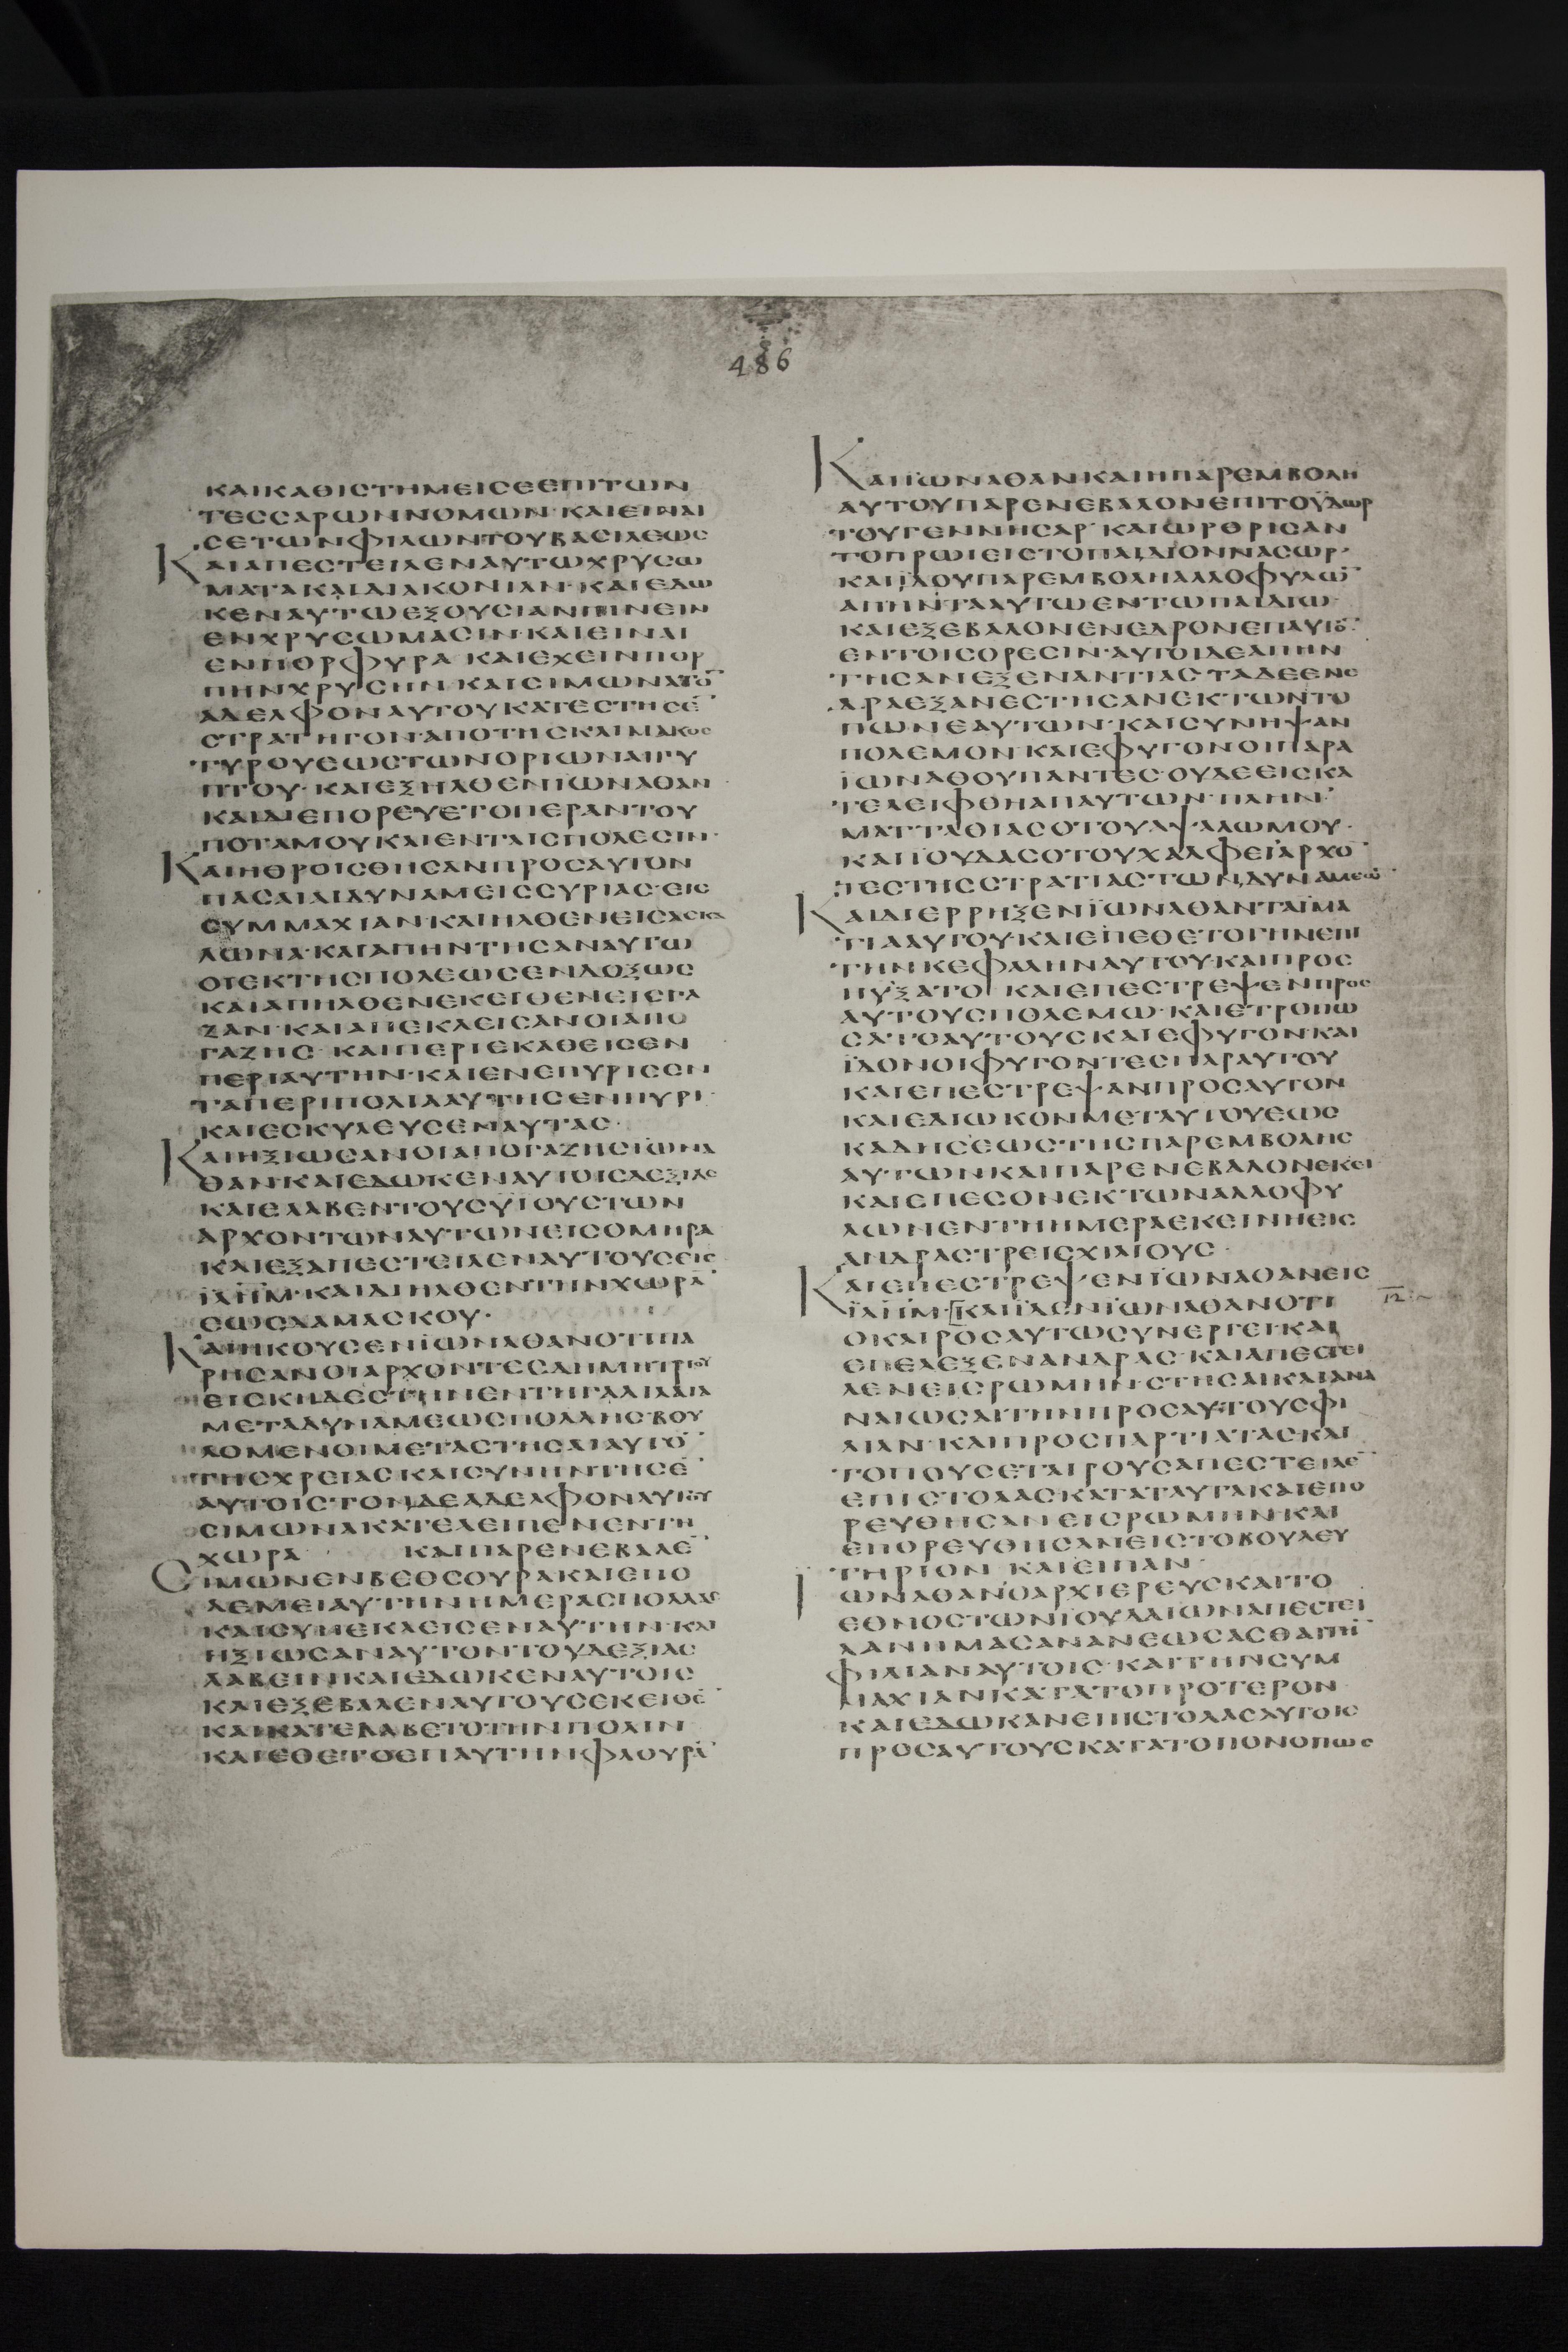 486
ΚΑΙΚΑΘΙCΤΗΜΕΙCΕΕΠΙΤΩΝ
ΤΕCCΑΡΩΝΝΟΜΩΝ·ΚΑΙΕΙΝΑΙ
CΕΤΩΝΦΙΛΩΝΤΟΥΒΑCΙΛΕΩC
ΚΑΙΑΠΕCΤΕΙΛΕΝΑΥΤΩΧΡΥCΩ
ΜΑΤΑΚΑΙΔΙΑΚΟΝΙΑΝ·ΚΑΙΕΔΩ
ΚΕΝΑΥΤΩΕΞΟΥCΙΑΝΠΙΝΕΙΝ
ΕΝΧΡΥCΩΜΑCΙΝ·ΚΑΙΕΙΝΑΙ
ΕΝΠΟΡΦΥΡΑ ΚΑΙΕΧΕΙΝΠΟΡ
ΠΗΝΧΡΥCΗΝ·ΚΑΙCΙΜΩΝΑΤΟ̅
ΑΔΕΛΦΟΝΑΥΤΟΥΚΑΤΕCΤΗCΕ̅
CΤΡΑΤΗΓΟΝ·ΑΠΟΤΗCΚΛΙΜΑΚΟC
ΤΥΡΟΥΕΩCΤΩΝΟΡΙΩΝΑΙΓΥ
ΠΤΟΥ·ΚΑΙΕΞΗΛΘΕΝΪΩΝΑΘΑΝ
ΚΑΙΔΙΕΠΟΡΕΥΕΤΟΠΕΡΑΝΤΟΥ
ΠΟΤΑΜΟΥΚΑΙΕΝΤΑΙCΠΟΛΕCΙΝ·
ΚΑΙΗΘΡΟΙCΘΗCΑΝΠΡΟCΑΥΤΟΝ
ΠΑCΑΙΑΙΔΥΝΑΜΕΙCCΥΡΙΑC·ΕΙC
CΥΜΜΑΧΙΑΝ·ΚΑΙΗΛΘΕΝΕΙCΑCΚΑ
ΛΩΝΑ·ΚΑΙΑΠΗΝΤΗCΑΝΑΥΤΩ
ΟΙΕΚΤΗCΠΟΛΕΩCΕΝΔΟΞΩC
ΚΑΙΑΠΗΛΘΕΝΕΚΕΙΘΕΝΕΙCΓΑ
ΖΑΝ·ΚΑΙΑΠΕΚΛΕΙCΑΝΟΙΑΠΟ
ΓΑΖΗC ΚΑΙΠΕΡΙΕΚΑΘΕΙCΕΝ
ΠΕΡΙΑΥΤΗΝ·ΚΑΙΕΝΕΠΥΡΙCΕΝ
ΤΑΠΕΡΙΠΟΛΙΑΑΥΤΗCΕΝΠΥΡΙ·
ΚΑΙΕCΚΥΛΕΥCΕΝΑΥΤΑC·
ΚΑΙΗΞΙΩCΑΝΟΙΑΠΟΓΑΖΗCΪΩΝΑ
ΘΑΝ·ΚΑΙΕΔΩΚΕΝΑΥΤΟΙCΔΕΞΙΑC
ΚΑΙΕΛΑΒΕΝΤΟΥCΥΪΟΥCΤΩΝ
ΑΡΧΟΝΤΩΝΑΥΤΩΝΕΙCΟΜΗΡΑ
ΚΑΙΕΞΑΠΕCΤΕΙΛΕΝΑΥΤΟΥCΕΙC
ΪΛΗΜ·ΚΑΙΔΙΗΛΘΕΝΤΗΝΧΩΡΑ̅
ΕΩCΔΑΜΑCΚΟΥ·
ΚΑΙΗΚΟΥCΕΝΪΩΝΑΘΑΝΟΤΙΠΑ
ΡΗCΑΝΟΙΑΡΧΟΝΤΕCΔΗΜΗΤΡΙΟΥ
ΕΙCΚΗΔΕCΤΗΝΕΝΤΗΓΑΛΙΛΑΙΑ
ΜΕΤΑΔΥΝΑΜΕΩCΠΟΛΛΗC·ΒΟΥ
ΛΟΜΕΝΟΙΜΕΤΑCΤΗCΑΙΑΥΤΟ̅
ΤΗCΧΡΕΙΑCΚΑΙCΥΝΗΝΤΗCΕ̅
ΑΥΤΟΙC·ΤΟΝΔΕΑΔΕΛΦΟΝΑΥΤΟΥ
CΙΜΩΝΑΚΑΤΕΛΕΙΠΕΝΕΝΤΗ
ΧΩΡΑ ΚΑΙΠΑΡΕΝΕΒΑΛΕ̅
CΙΜΩΝΕΝΒΕΘCΟΥΡΑΚΑΙΕΠΟ
ΛΕΜΕΙΑΥΤΗΝΗΜΕΡΑCΠΟΛΛΑC
ΚΑΙCΥΝΕΚΛΕΙCΕΝΑΥΤΗΝ·ΚΑΙ
ΗΞΙΩCΑΝΑΥΤΟΝΤΟΥΔΕΞΙΑC
ΛΑΒΕΙΝΚΑΙΕΔΩΚΕΝΑΥΤΟΙC
ΚΑΙΕΞΕΒΑΛΕΝΑΥΤΟΥCΕΚΕΙΘΕ̅
ΚΑΙΚΑΤΕΛΑΒΕΤΟΤΗΝΠΟΛΙΝ
ΚΑΙΕΘΕΤΟΕΠΑΥΤΗΝΦΛΟΥΡΙ̅
ΚΑΙΪΩΝΑΘΑΝΚΑΙΗΠΑΡΕΜΒΟΛΗ
ΑΥΤΟΥΠΑΡΕΝΕΒΑΛΟΝΕΠΙΤΟΫΔΩΡ
ΤΟΥΓΕΝΝΗCΑΡ· ΚΑΙΩΡΘΡΙCΑΝ
ΤΟΠΡΩΙΕΙCΤΟΠΑΙΔΙΟΝΝΑCΩΡ·
ΚΑΙΪΔΟΥΠΑΡΕΜΒΟΛΗΑΛΛΟΦΥΛΩ̅
ΑΠΗΝΤΑΑΥΤΩΕΝΤΩΠΑΙΔΙΩ
ΚΑΙΕΞΕΒΑΛΟΝΕΝΕΔΡΟΝΕΠΑΥΤΟ̅
ΕΝΤΟΙCΟΡΕCΙΝ·ΑΥΤΟΙΔΕΑΠΗΝ
ΤΗCΑΝΕΞΕΝΑΝΤΙΑCΤΑΔΕΕΝΕ
ΔΡΑΕΞΑΝΕCΤΗCΑΝΕΚΤΩΝΤΟ
ΠΩΝΕΑΥΤΩΝ·ΚΑΙCΥΝΗΨΑΝ
ΠΟΛΕΜΟΝ·ΚΑΙΕΦΥΓΟΝΟΙΠΑΡΑ
ΪΩΝΑΘΟΥΠΑΝΤΕC·ΟΥΔΕΕΙCΚΑ
ΤΕΛΕΙΦΘΗΑΠΑΥΤΩΝ·ΠΛΗΝ
ΜΑΤΤΑΘΙΑCΟΤΟΥΑΨΑΛΩΜΟΥ·
ΚΑΙΪΟΥΔΑCΟΤΟΥΧΑΛΦΕΙΑΡΧΟ̅
ΤΕCΤΗCCΤΡΑΤΙΑCΤΩΝΔΥΝΑΜΕΩ̅
ΚΑΙΔΙΕΡΡΗΞΕΝΪΩΝΑΘΑΝΤΑΪΜΑ
ΤΙΑΑΥΤΟΥ·ΚΑΙΕΠΕΘΕΤΟΓΗΝΕΠΙ
ΤΗΝΚΕΦΑΛΗΝΑΥΤΟΥ·ΚΑΙΠΡΟC
ΗΥΞΑΤΟ ΚΑΙΕΠΕCΤΡΕΨΕΝΠΡΟC
ΑΥΤΟΥCΠΟΛΕΜΩ·ΚΑΙΕΤΡΟΠΩ
CΑΤΟΑΥΤΟΥCΚΑΙΕΦΥΓΟΝ·ΚΑΙ
ΪΔΟΝΟΙΦΥΓΟΝΤΕCΠΑΡΑΥΤΟΥ
ΚΑΙΕΠΕCΤΡΕΨΑΝΠΡΟCΑΥΤΟΝ
ΚΑΙΕΔΙΩΚΟΝΜΕΤΑΥΤΟΥΕΩC
ΚΑΔΗCΕΩCΤΗCΠΑΡΕΜΒΟΛΗC
ΑΥΤΩΝΚΑΙΠΑΡΕΝΕΒΑΛΟΝΕΚΕΙ
ΚΑΙΕΠΕCΟΝΕΚΤΩΝΑΛΛΟΦΥ
ΛΩΝΕΝΤΗΗΜΕΡΑΕΚΕΙΝΗΕΙC
ΑΝΔΡΑCΤΡΕΙCΧΙΛΙΟΥC·
ΚΑΙΕΠΕCΤΡΕΨΕΝΪΩΝΑΘΑΝΕΙC
ΪΛΗΜ·ΚΑΙΪΔΕΝΪΩΝΑΘΑΝΟΤΙ 12
ΟΚΑΙΡΟCΑΥΤΩCΥΝΕΡΓΕΙ·ΚΑΙ
ΕΠΕΛΕΞΕΝΑΝΔΡΑC·ΚΑΙΑΠΕCΤΕΙ
ΛΕΝΕΙCΡΩΜΗΝ·CΤΗCΑΙΚΑΙΑΝΑ
ΝΑΙΩCΑΙΤΗΝΠΡΟCΑΥΤΟΥCΦΙ
ΛΙΑΝ·ΚΑΙΠΡΟCΠΑΡΤΙΑΤΑCΚΑΙ
ΤΟΠΟΥCΕΤΑΙΡΟΥCΑΠΕCΤΕΙΛΕ̅
ΕΠΙCΤΟΛΑCΚΑΤΑΤΑΥΤΑΚΑΙΕΠΟ
ΡΕΥΘΗCΑΝΕΙCΡΩΜΗΝ·ΚΑΙ
ΕΠΟΡΕΥΘΗCΑΝΕΙCΤΟΒΟΥΛΕΥ
ΤΗΡΙΟΝ ΚΑΙΕΙΠΑΝ·
ΙΩΝΑΘΑΝΟΑΡΧΙΕΡΕΥCΚΑΙΤΟ
ΕΘΝΟCΤΩΝΙΟΥΔΑΙΩΝΑΠΕCΤΕΙ
ΛΑΝΗΜΑCΑΝΑΝΕΩCΑCΘΑΙΤΗ̅
ΦΙΛΙΑΝΑΥΤΟΙC·ΚΑΙΤΗΝCΥΜ
ΜΑΧΙΑΝΚΑΤΑΤΟΠΡΟΤΕΡΟΝ
ΚΑΙΕΔΩΚΑΝΕΠΙCΤΟΛΑCΑΥΤΟΙC
ΠΡΟCΑΥΤΟΥCΚΑΤΑΤΟΠΟΝΟΠΩC